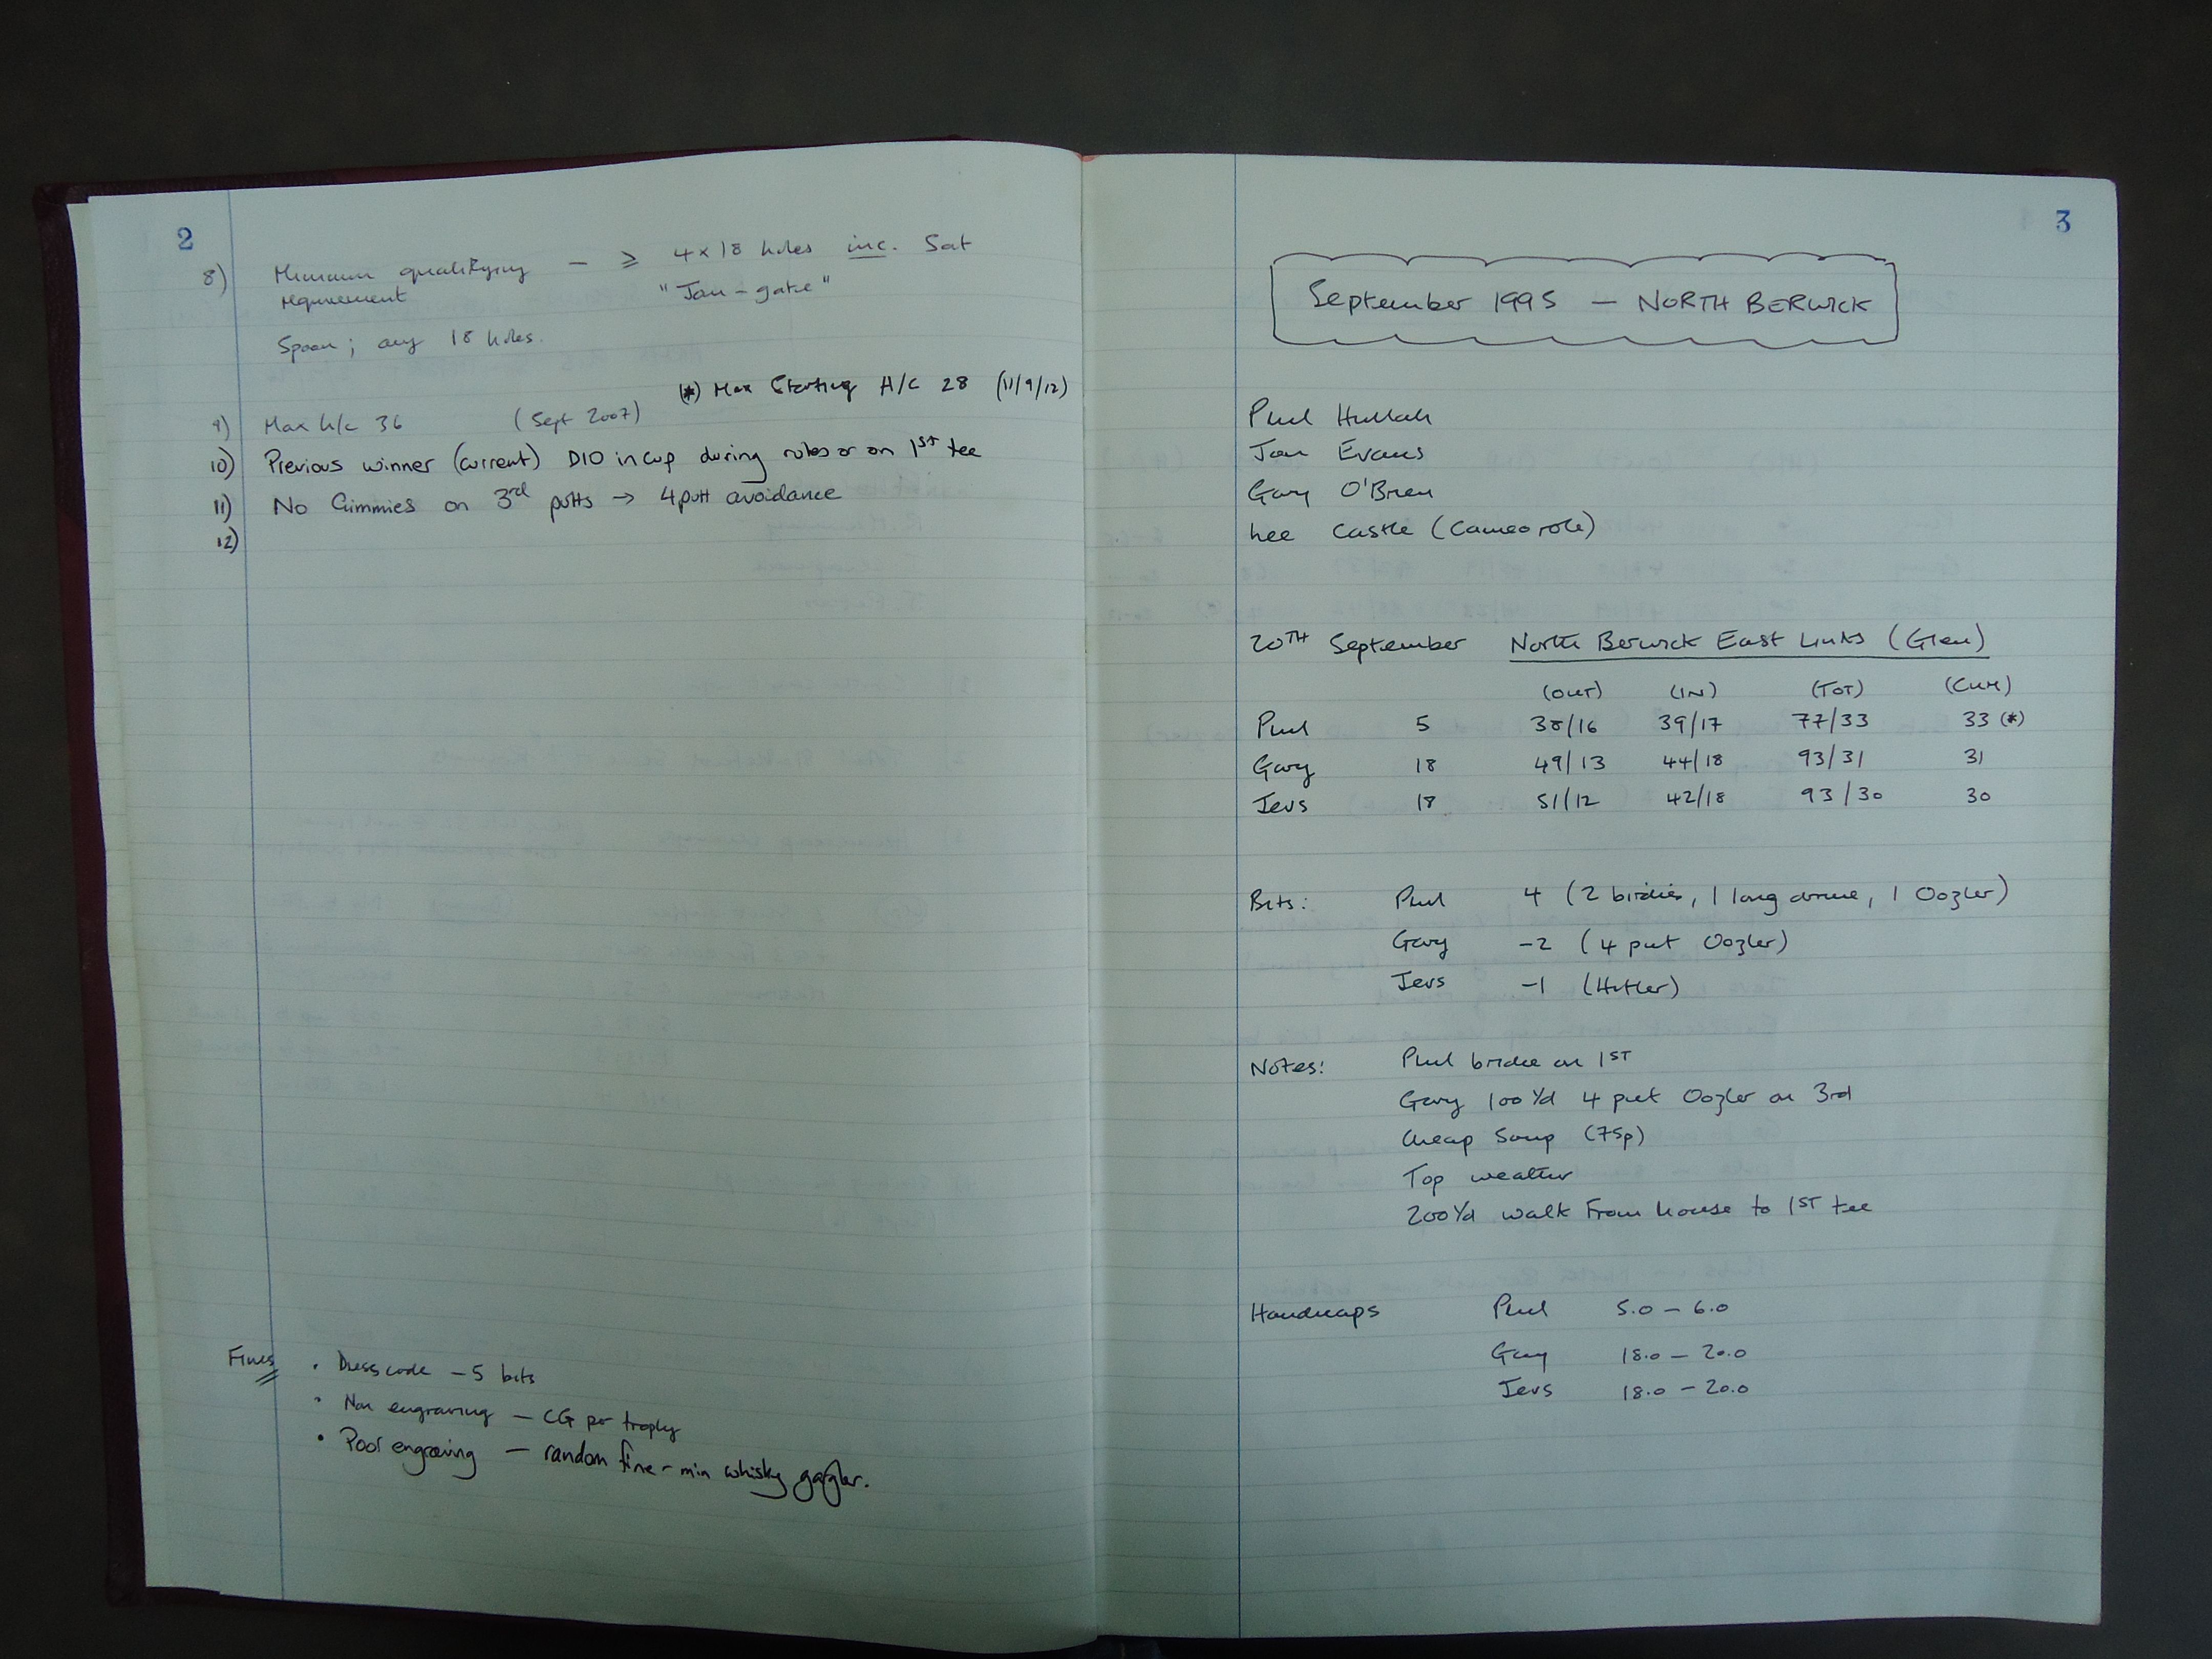 2
8) Minimum qualifying — ≥ 4x18 holes inc. Sat
requirement "Jon-gate"
Spoon; any 18 holes.
(*) Max Starting H/C 28 (11/9/12)
9) Max h/c 36 (Sept 2007)
10) Previous winner (current) D10 in cup during rules or on 1ST tee
11) No Gimmies on 3rd putts → 4 putt avoidance
12)
Fines
• Dress code – 5 bits
• Non engraving — CG per trophy
• Poor engraving — random fine - min whisky gargler.
3
September 1995 — NORTH BERWICK
Phil Hullah
Jon Evans
Gary O'Brien
Lee Castle (Cameo role)
20TH September North Berwick East Links (Glen)
(OUT) (IN) (TOT) (CUM)
Phil 5 38/16 39/17 77/33 33 (*)
Gary 18 49/13 44/18 93/31 31
Jevs 18 51/12 42/18 93/30 30
Bits: Phil 4 (2 birdies, 1 long drive, 1 Oozler)
Gary -2 (4 put Oozler)
Jevs -1 (Hitler)
Notes: Phil birdie on 1ST
Gary 100 Yd 4 put Oozler on 3rd
Cheap Soup (75p)
Top weather
200 Yd walk from house to 1ST tee
Handicaps Phil 5.0 – 6.0
Gary 18.0 – 20.0
Jevs 18.0 – 20.0